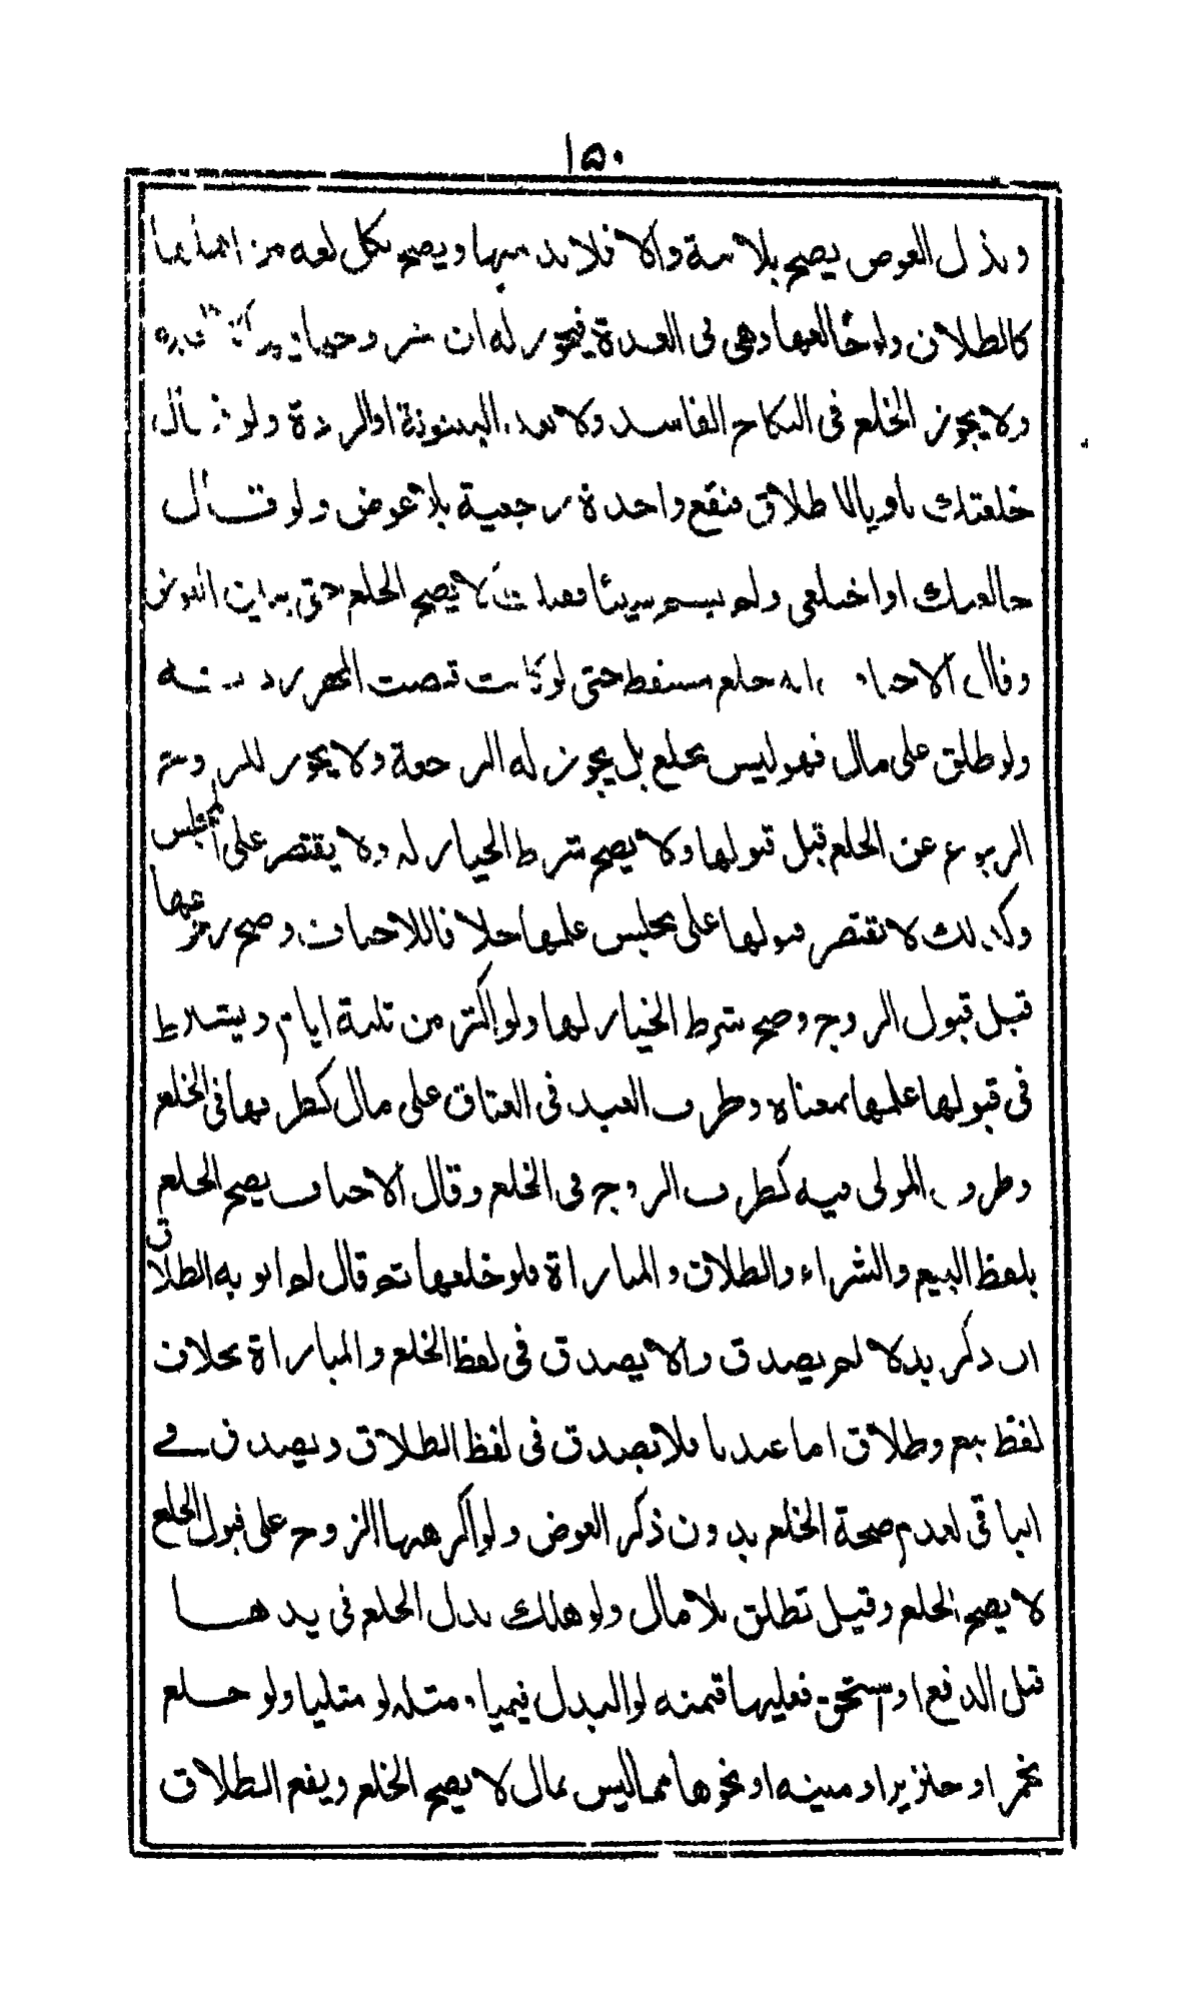 ١٥٠
وبذل العوض يصح بلا نية والا فلا بد منها ويصح بكل لغة من
كالطلاق ولو خالعها وهي في العدة فيجوز له ان
ولا يجوز الخلع في النكاح الفاسد ولا بعد البينونة او الردة ولو قال
خلعتك ناويا الطلاق فتقع واحدة رجعية بلا عوض ولو قال
خالعتك او اختلعي ولم يسم شيئا فقبلت لا يصح الخلع حتى
وقال الاحناف انه خلع مسقط حتى لو كانت قبضت المهر ردته
ولو طلق على مال فهو ليس بخلع بل يجوز له الرجعة ولا يجوز للزوج
الرجوع عن الخلع قبل قبولها ولا يصح شرط الخيار له ولا يقتصر على المجلس
وكذلك لا تقتصر قبولها على مجلس علمها خلافا للاحناف وصح رجوعها
قبل قبول الزوج وصح شرط الخيار لها ولو اكثر من ثلثة ايام ويشترط
في قبولها علمها بمعناه وطرف العبد في العتاق على مال كطرفها في الخلع
وطرف المولى فيه كطرف الزوج في الخلع وقال الاحناف يصح الخلع
بلفظ البيع والشراء والطلاق والمباراة فلو خلعها ثم قال لم انو به الطلاق
ان ذكر بدلا لم يصدق والا يصدق في لفظ الخلع والمباراة بخلاف
لفظ بيع وطلاق اما عندنا فلا يصدق في لفظ الطلاق ويصدق في
الباقي لعدم صحة الخلع بدون ذكر العوض ولو اكرهها الزوج على قبول الخلع
لا يصح الخلع وقيل تطلق بلا مال ولو هلك بدل الخلع في يدها
قبل الدفع او استحق فعليها قيمته لو البدل قيميا ومثله لو مثليا ولو خلع
بخمر او خنزير او ميتة او نحوها مما ليس بمال لا يصح الخلع ويقع الطلاق